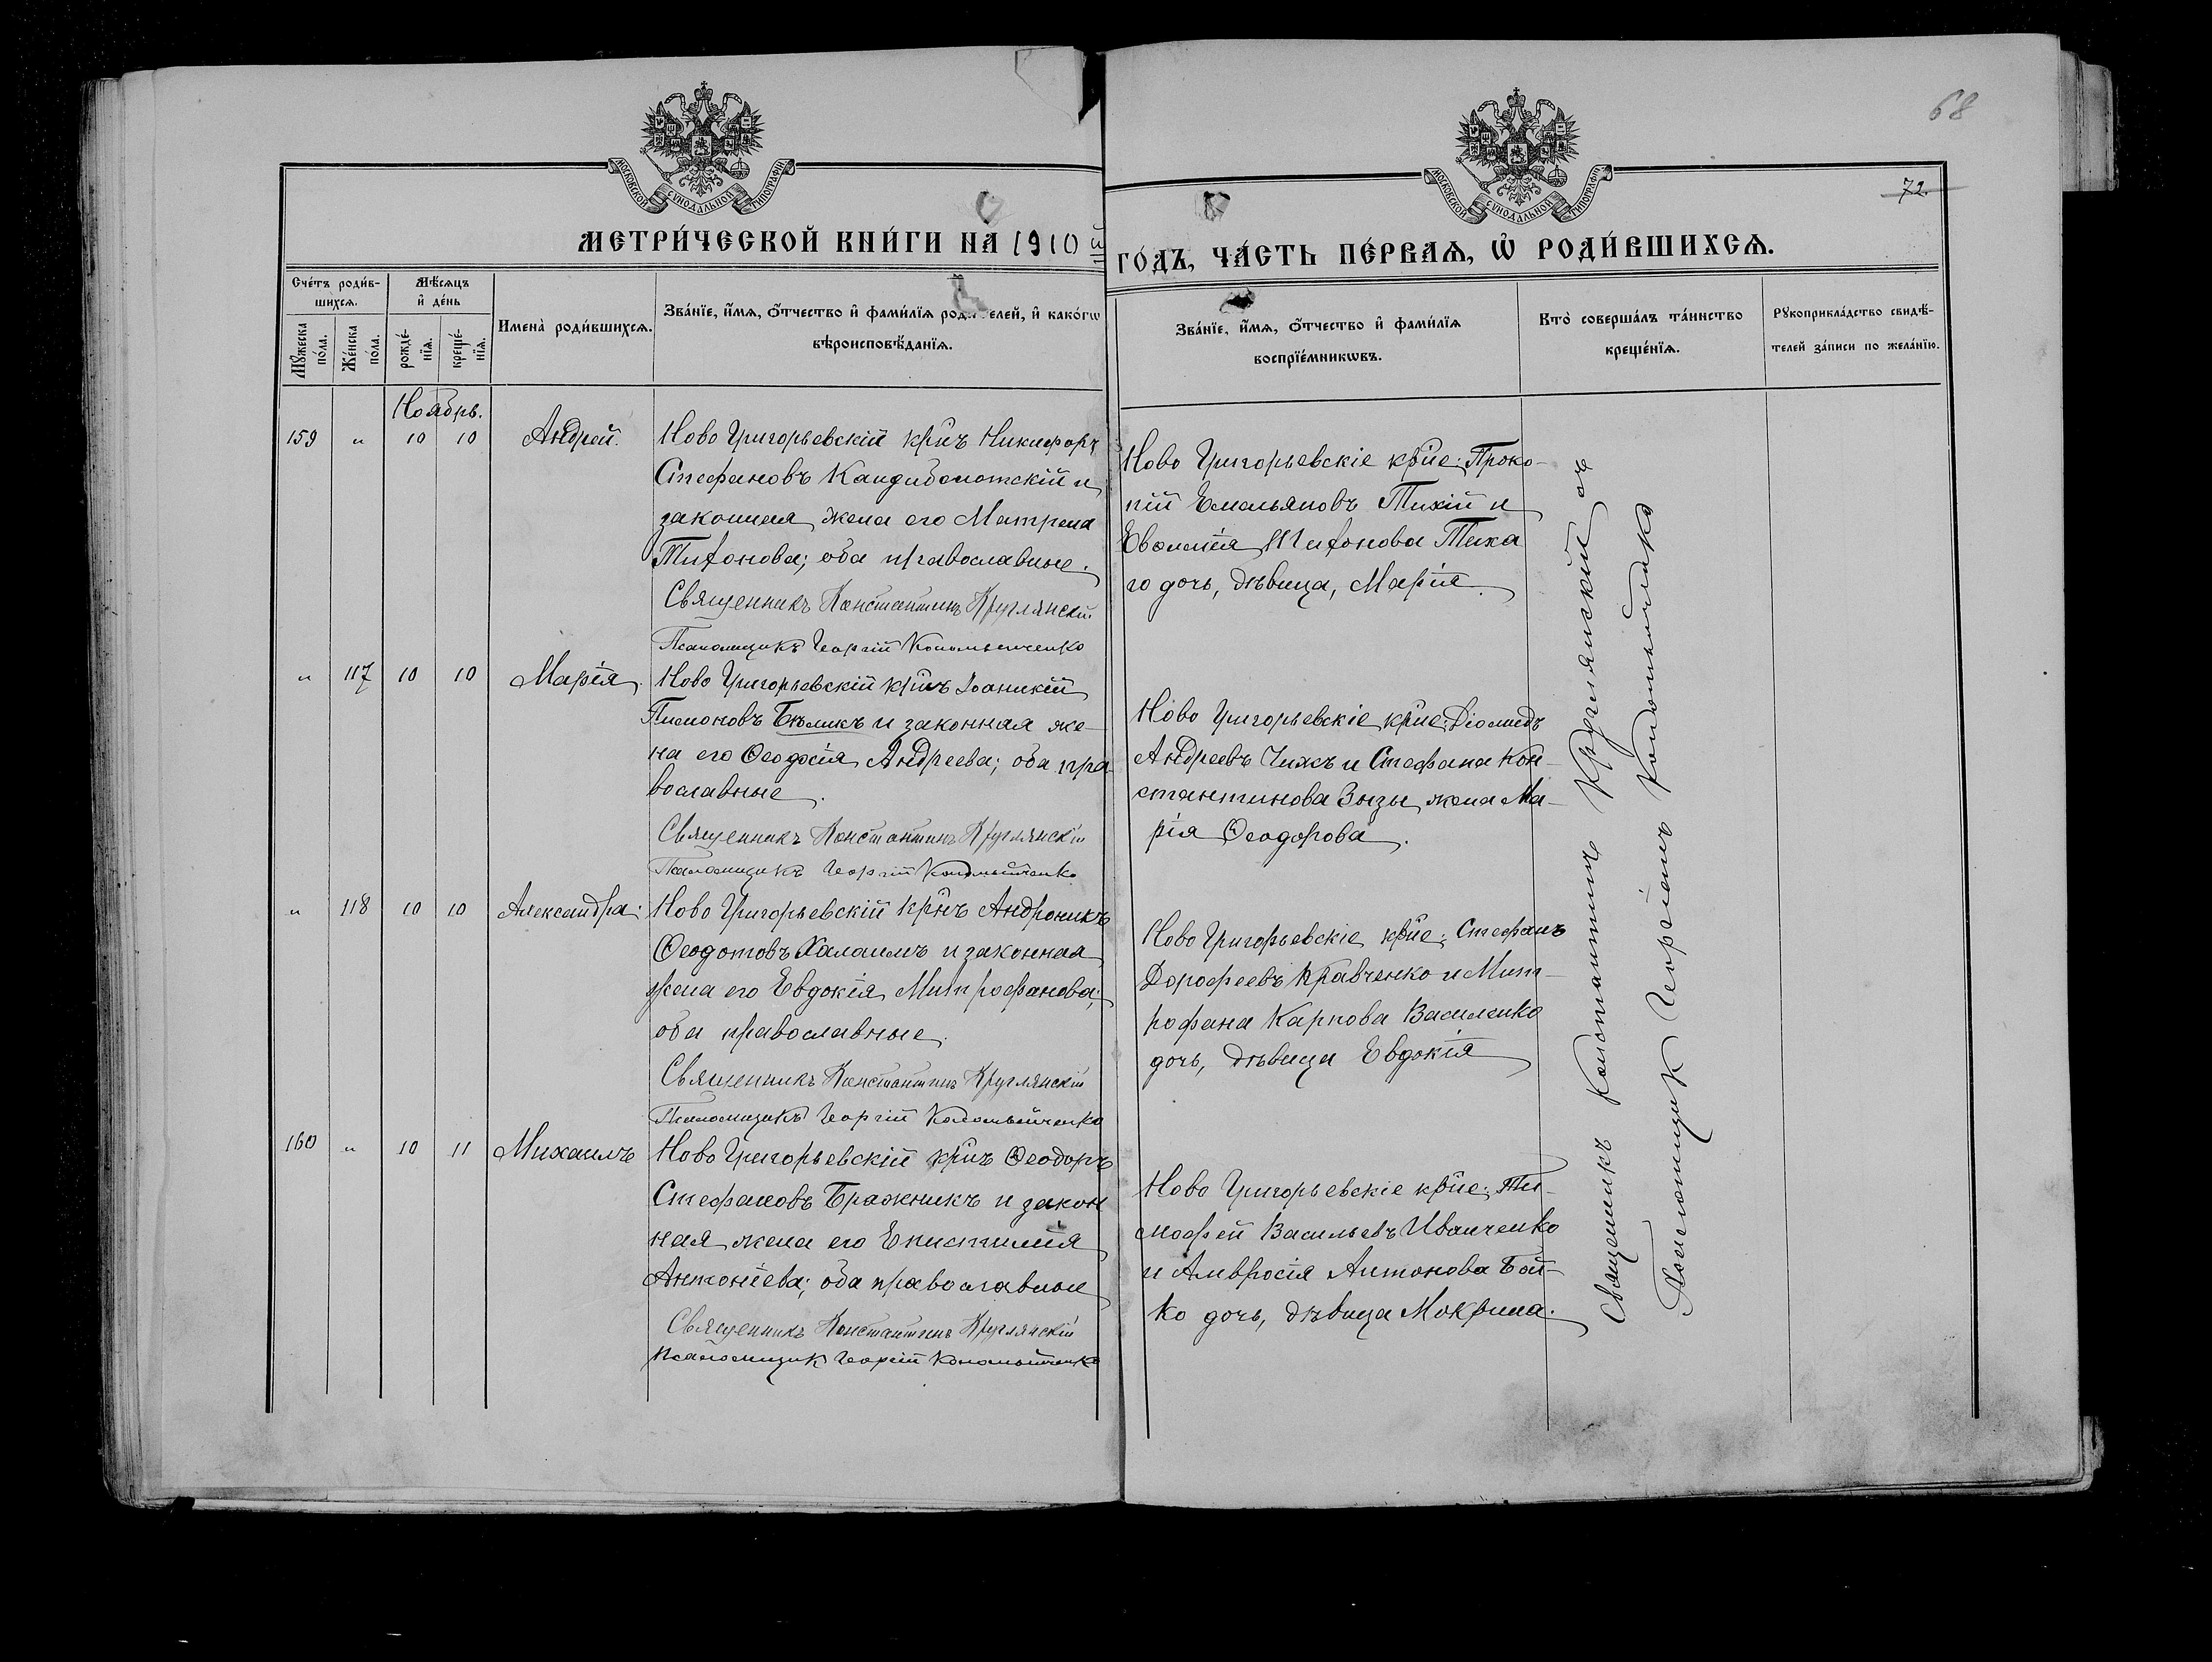 68
72
МОСКОВСКОЙ СѴНОДАЛЬНОЙ ТИПОГРАФІИ
МОСКОВСКОЙ СѴНОДАЛЬНОЙ ТИПОГРАФІИ
МЕТРИ́ЧЕСКОЙ КНИ́ГИ НА̀ 1910
ГО́ДЪ, ЧА́СТЬ ПЕ́РВАѦ, Ѡ҆ РОДИ́ВШИХСѦ.
Сче́тъ роди́в-
шихсѧ.
Мꙋ́жеска
по́ла.
Же́нска
по́ла.
Мѣ́сѧцъ
и҆ де́нь
рожде́-
нїѧ.
креще́-
нїѧ.
Имена̀ роди́вшихсѧ.
Зва́нїе, и҆́мѧ, ѻ҆́тчество и҆ фами́лїѧ родителей, и҆ како́гѡ
вѣроисповѣ́данїѧ.
Зва́нїе, и҆́мѧ, ѻ҆́тчество и҆ фами́лїѧ
воспрїе́мникѡвъ.
Кто̀ соверша́лъ та́инство
креще́нїѧ.
Рꙋкоприкла́дство свидѣ́-
телей за́писи по жела́нїю.
Ноябрь.
159 „ 10 10 Андрей.
Ново Григорьевскій крнъ Никифоръ
Стефановъ Кандиболотскій и
законная жена его Матрена
Тихонова; оба православные.
Священникъ Константинъ Круглянскій
Псаломщикъ Георгій Коломыйченко
Ново Григорьевскіе крне: Проко-
пій Емельяновъ Тихій и
Евфимія Тихонова Тиха
го дочь, дѣвица, Марія.
„ 117 10 10 Марія.
Ново Григорьевскій крнъ Іоаникій
Пимоновъ Бѣликъ и законная же-
на его Ѳеодосія Андреева; оба пра
вославные.
Священникъ Константинъ Круглянскій
Псаломщикъ Георгій Коломыйченко
Ново Григорьевскіе крне: Діомидъ
Андреевъ Чижъ и Стефана Кон-
стантинова Вызы жена Ма-
рія Ѳеодорова.
„ 118 10 10 Александра.
Ново Григорьевскій крнъ Андроникъ
Ѳеодотовъ Халаимъ и законная
жена его Евдокія Митрофанова;
оба православные.
Священникъ Константинъ Круглянскій
Псаломщикъ Георгій Коломыйченко
Ново Григорьевскіе крне: Стефанъ
Дорофеевъ Кравченко и Мит-
рофана Карпова Василенко
дочь, дѣвица Евдокія
160 „ 10 11 Михаилъ
Ново Григорьевскій крнъ Ѳеодоръ
Стефановъ Бражникъ и закон
ная жена его Епистимія
Антоніева; оба православные
Священникъ Константинъ Круглянскій
Псаломщикъ Георгій Коломыйченко
Ново Григорьевскіе крне: Ти-
мофей Васильевъ Иванченко
и Амвросія Антонова Бой-
ко дочь, дѣвица Мокрина.
Священникъ Константинъ Круглянскій съ
Псаломщик Георгіемъ Коломыйченко